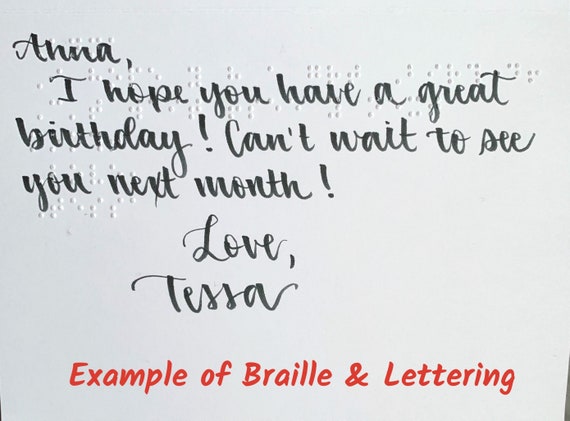 Anna,
I hope you have a great
birthday! Can't wait to see
you next month!
Love,
Tessa
Example of Braille & Lettering